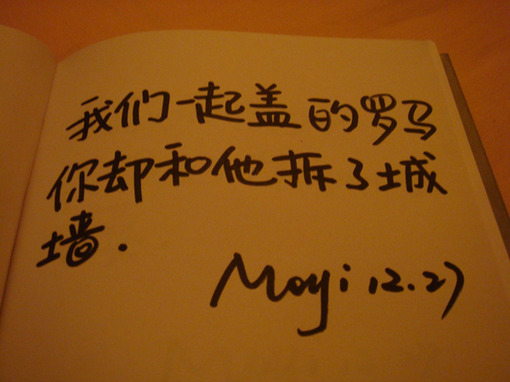 我们一起盖的罗马
你却和他拆了城
墙.
Moyi 12.27